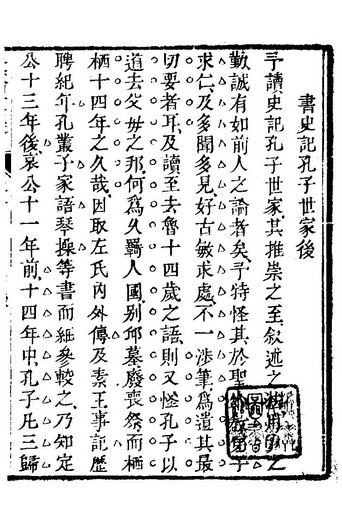 書史記孔子世家後
予讀史記孔子世家其推崇之至叙述之
勤誠有如前人之論者矣予特怪其於聖
求仁及多聞多見好古敏求處不一涉筆爲遺其最
切要者耳及讀至去魯十四歲之語則又怪孔子以
道去父母之邦何爲久羈人國别邱墓廢喪祭而栖
栖十四年之久哉因取左氏内外傳及素王事記歷
聘紀年孔叢子家語琴操等書而細參較之乃知定
公十三年後哀公十一年前十四年中孔子凡三歸